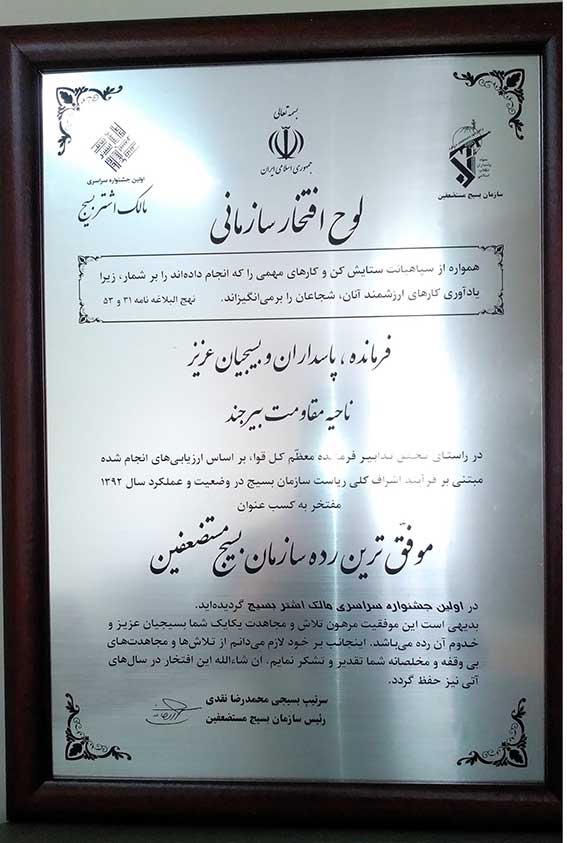 بسمه تعالی
جمهوری اسلامی ایران
سپاه
پاسداران
انقلاب
اسلامی
سازمان بسیج مستضعفین
اولین جشنواره سراسری
مالک اشتر بسیج
لوح افتخار سازمانی
همواره از سپاهیانت ستایش کن و کارهای مهمی را که انجام داده‌اند را بر شمار، زیرا
یادآوری کارهای ارزشمند آنان، شجاعان را برمی‌انگیزاند. نهج البلاغه نامه ۳۱ و ۵۳
فرمانده، پاسداران و بسیجیان عزیز
ناحیه مقاومت بیرجند
در راستای تحقق تدابیر فرمانده معظّم کل قوا، بر اساس ارزیابی‌های انجام شده
مبتنی بر فرآیند اشراف کلی ریاست سازمان بسیج در وضعیت و عملکرد سال ۱۳۹۲
مفتخر به کسب عنوان
موفق ترین رده سازمان بسیج مستضعفین
در اولین جشنواره سراسری مالک اشتر بسیج گردیده‌اید.
بدیهی است این موفقیت مرهون تلاش و مجاهدت یکایک شما بسیجیان عزیز و
خدوم آن رده می‌باشد. اینجانب بر خود لازم می‌دانم از تلاش‌ها و مجاهدت‌های
بی وقفه و مخلصانه شما تقدیر و تشکر نمایم. ان شاءالله این افتخار در سال‌های
آتی نیز حفظ گردد.
سرتیپ بسیجی محمدرضا نقدی
رئیس سازمان بسیج مستضعفین